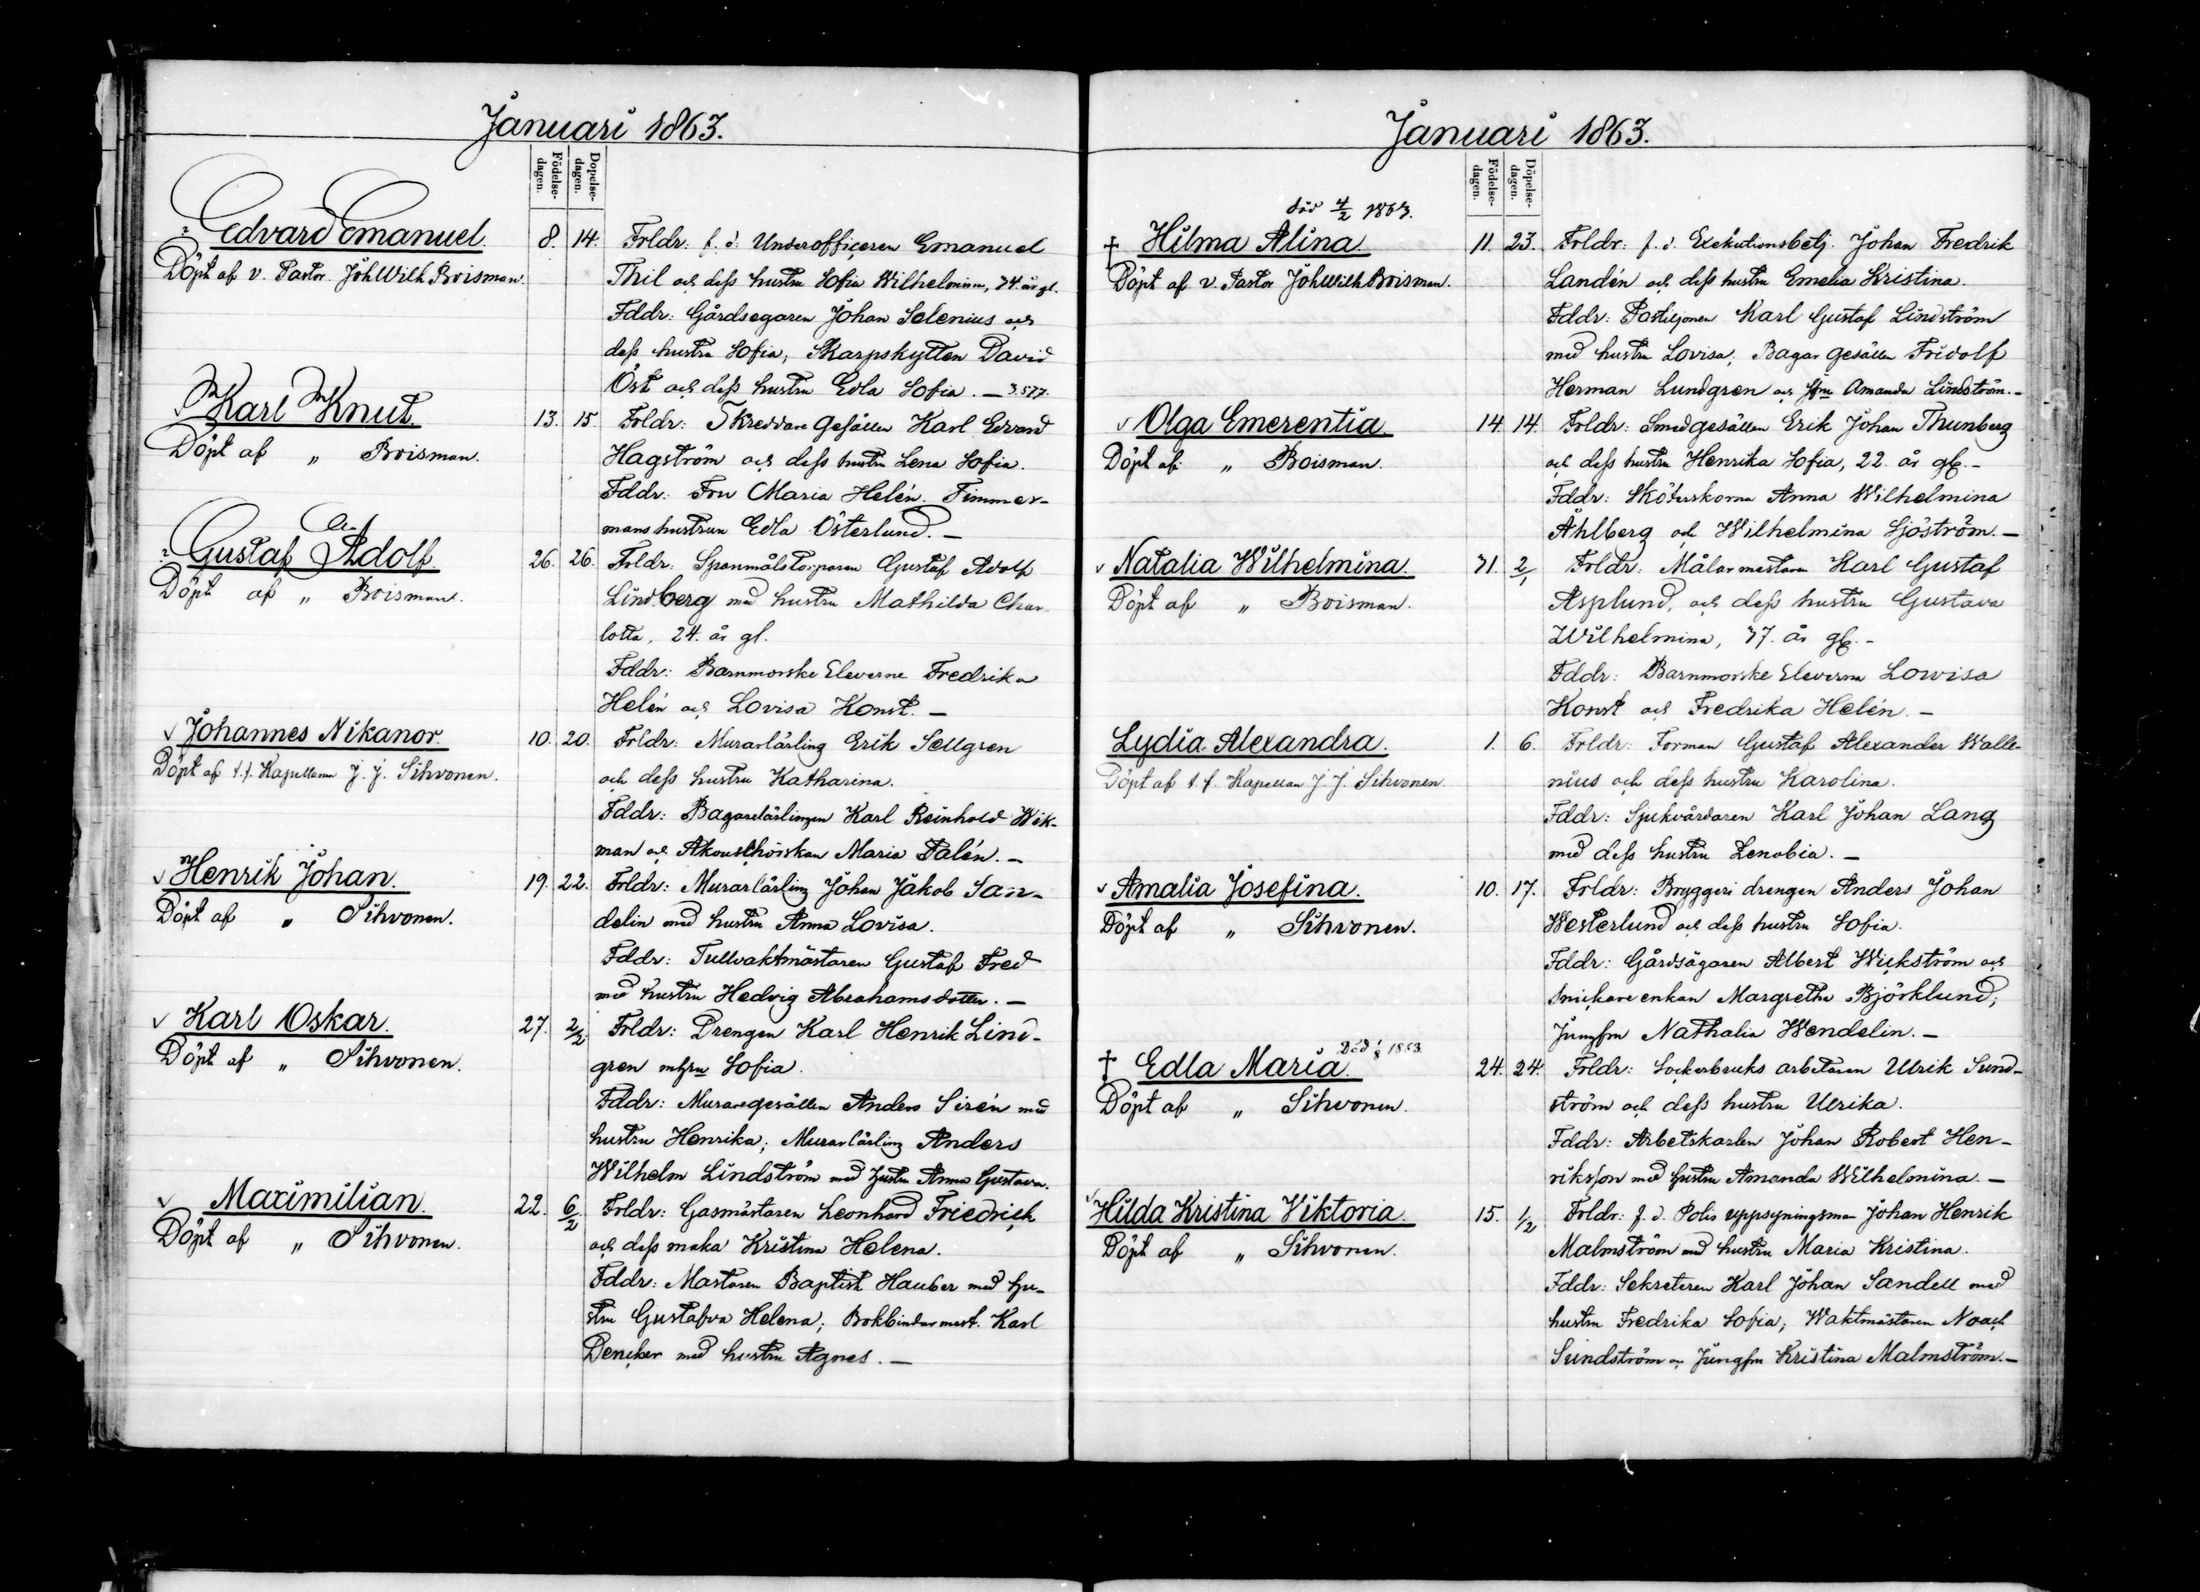 Januari 1863.
Födelse-
dagen.
Döpelse-
dagen.
Edvard Emanuel.
8. 14. Frldr: f. d. Underofficeren Emanuel
Döpt af v. Pastor Joh Wilh Boisman.
Thil och dess hustru Sofia Wilhelmina, 34 år gl.
Fddr: Gårdsegaren Johan Selenius och
dess hustru Sofia, Skarpskytten David
Öst och dess hustru Edla Sofia. —
Karl Knut.
13. 15 Frldr: Skreddare Gesällen Karl Edvard
Döpt af „ Boisman.
Hagström och dess hustru Lena Sofia.
Fddr: Fru Maria Helén. Timmer-
manshustrun Edla Österlund. —
Gustaf Adolf.
26. 26. Frldr: Spanmålstorparen Gustaf Adolf
Döpt af „ Boisman.
Lindberg med hustru Mathilda Char-
lotta, 24. år gl.
Fddr: Barnmorske Eleverne Fredrika
Helén och Lovisa Konst. —
Johannes Nikanor.
10. 20. Frldr: Murarlärling Erik Sellgren
Döpt af t. f. Kapellanen J. J. Sihvonen.
och dess hustru Katharina.
Fddr: Bagarelärlingen Karl Reinhold Wik-
man och Maria Talén. —
Henrik Johan.
19. 22. Frldr: Murarlärling Johan Jakob San-
Döpt af „ Sihvonen.
delin med hustru Anna Lovisa.
Fddr: Tullvaktmästaren Gustaf Fred
med hustru Hedvig Abrahamsdotter. —
Karl Oskar.
27. 2/2 Frldr: Drengen Karl Henrik Lind-
Döpt af „ Sihvonen.
gren Sofia.
Fddr: Muraregesällen Anders Sirén med
hustru Henrika; Murarlärling Anders
Wilhelm Lindström med hustru Anna Gustava.
Maximilian.
22. 6/2 Frldr: Gasmästaren Leonhard Friedrich
Döpt af „ Sihvonen.
och dess maka Kristina Helena.
Fddr: Mästaren Baptist Hauber med hu-
stru Gustafva Helena; Bokbindarmest. Karl
Dencker med hustru Agnes. —
Januari 1863.
Födelse-
dagen.
Döpelse-
dagen.
död 4/2 1863.
† Hilma Alina
11. 23. Frldr: f. d. Exekutionsbetj. Johan Fredrik
Döpt af v. Pastor Joh Wilh Boisman.
Landén och dess hustru Emelia Kristina.
Fddr: Postiljonen Karl Gustaf Lindström
med hustru Lovisa; Bagar Gesällen Fridolf
Herman Lundgren och Jfru Amanda Lindström. -
Olga Emerentia
14. 14. Frldr: Smedgesällen Erik Johan Thunberg
Döpt af „ Boisman.
och dess hustru Henrika Sofia, 22 år gl. -
Fddr: Sköterskorna Anna Wilhelmina
Åhlberg och Wilhelmina Sjöström. —
Natalia Wilhelmina.
31. 2/1 Frldr: Målarmästaren Karl Gustaf
Döpt af „ Boisman.
Asplund, och dess hustru Gustava
Wilhelmina, 37. år gl. -
Fddr: Barnmorske Eleverna Lowisa
Konst och Fredrika Helén. —
Lydia Alexandra.
1. 6. Frldr: Forman Gustaf Alexander Walle-
Döpt af t. f. Kapellan J. J. Sihvonen.
nius och dess hustru Karolina.
Fddr: Sjukvårdaren Karl Johan Lang
med dess hustru Zenobia. —
Amalia Josefina.
10. 17. Frldr: Bryggeri drengen Anders Johan
Döpt af „ Sihvonen.
Westerlund och dess hustru Sofia.
Fddr: Gårdsägaren Albert Wickström och
snickare enkan Margretha Björklund;
Jungfru Nathalia Wendelin. —
† Edla Maria.
24. 24. Frldr: Sockerbruks arbetaren Ulrik Sund-
Döpt af „ Sihvonen.
ström och dess hustru Ulrika.
Fddr: Arbetskarlen Johan Robert Hen-
riksson med hustru Amanda Wilhelmina. —
Hilda Kristina Viktoria.
15. 1/2 Frldr: f. d. Polis uppsyningsman Johan Henrik
Döpt af „ Sihvonen.
Malmström med hustru Maria Kristina.
Fddr: Sekreteren Karl Johan Sandell med
hustru Fredrika Sofia; Waktmästaren Noach
Sundström och Jungfru Kristina Malmström. —